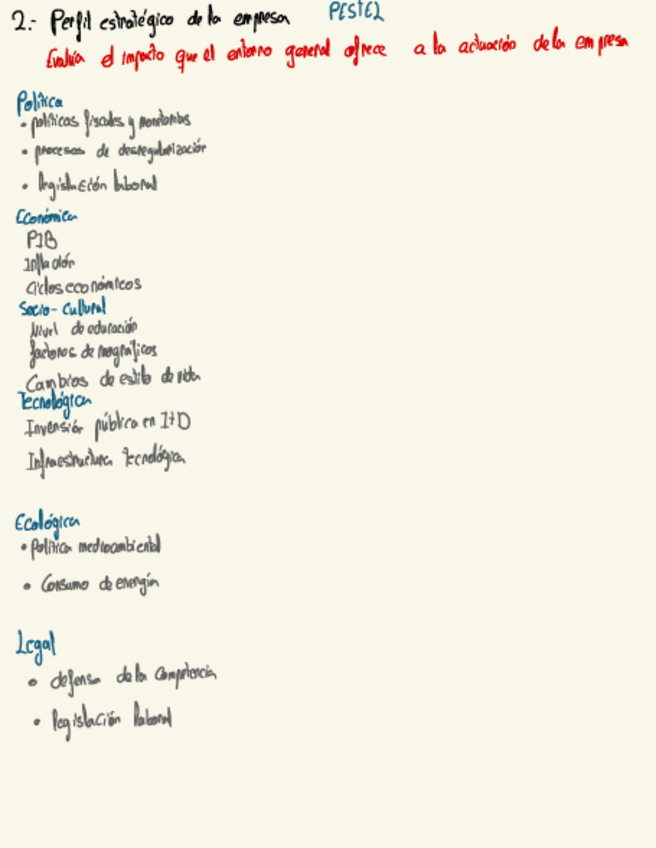 2.- Perfil estratégico de la empresa PESTEL
Evalúa el impacto que el entorno general ofrece a la actuación de la empresa
Política
• políticas fiscales y monetarias
• procesos de desregularización
• legislación laboral
Económica
PIB
Inflación
Ciclos económicos
Socio-Cultural
Nivel de educación
factores demográficos
Cambios de estilo de vida
Tecnológica
Inversión pública en I+D
Infraestructura tecnológica
Ecológica
• Política medioambiental
• Consumo de energía
Legal
• defensa de la competencia
• legislación laboral